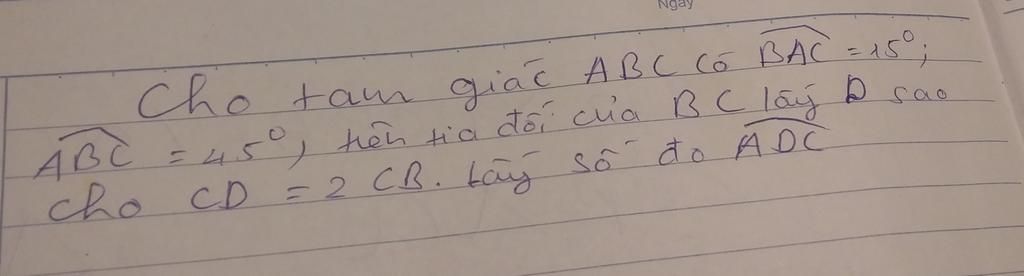 Ngày
Cho tam giác ABC có BAC = 15°;
ABC = 45°, trên tia đối của BC lấy D sao
cho CD = 2 CB. Lấy số đo ADC